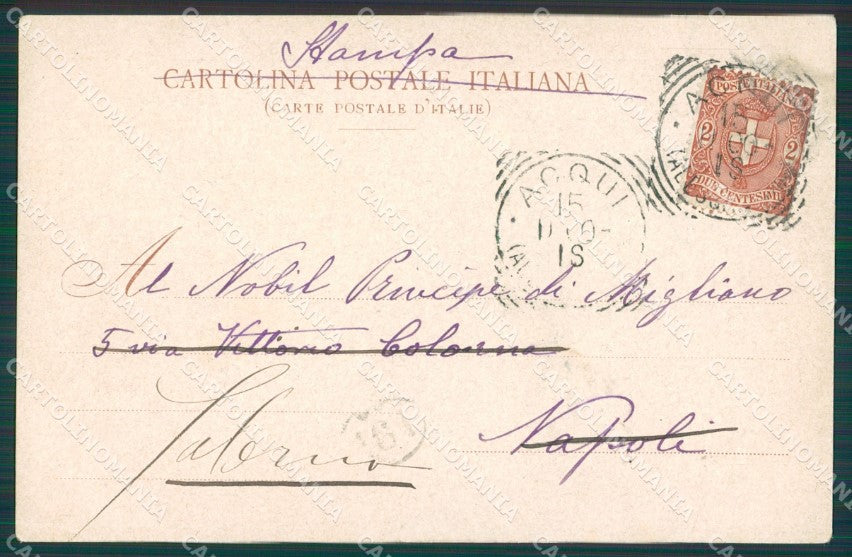 Stampa
CARTOLINA POSTALE ITALIANA
(CARTE POSTALE D'ITALIE)
POSTE ITALIANE
2 2
DUE CENTESIMI
ACQUI
15
ACQUI
15
IS
Al Nobil Principe di Migliano
5 via Vittoria Colonna
Napoli
Salerno
CARTOLINOMANIA